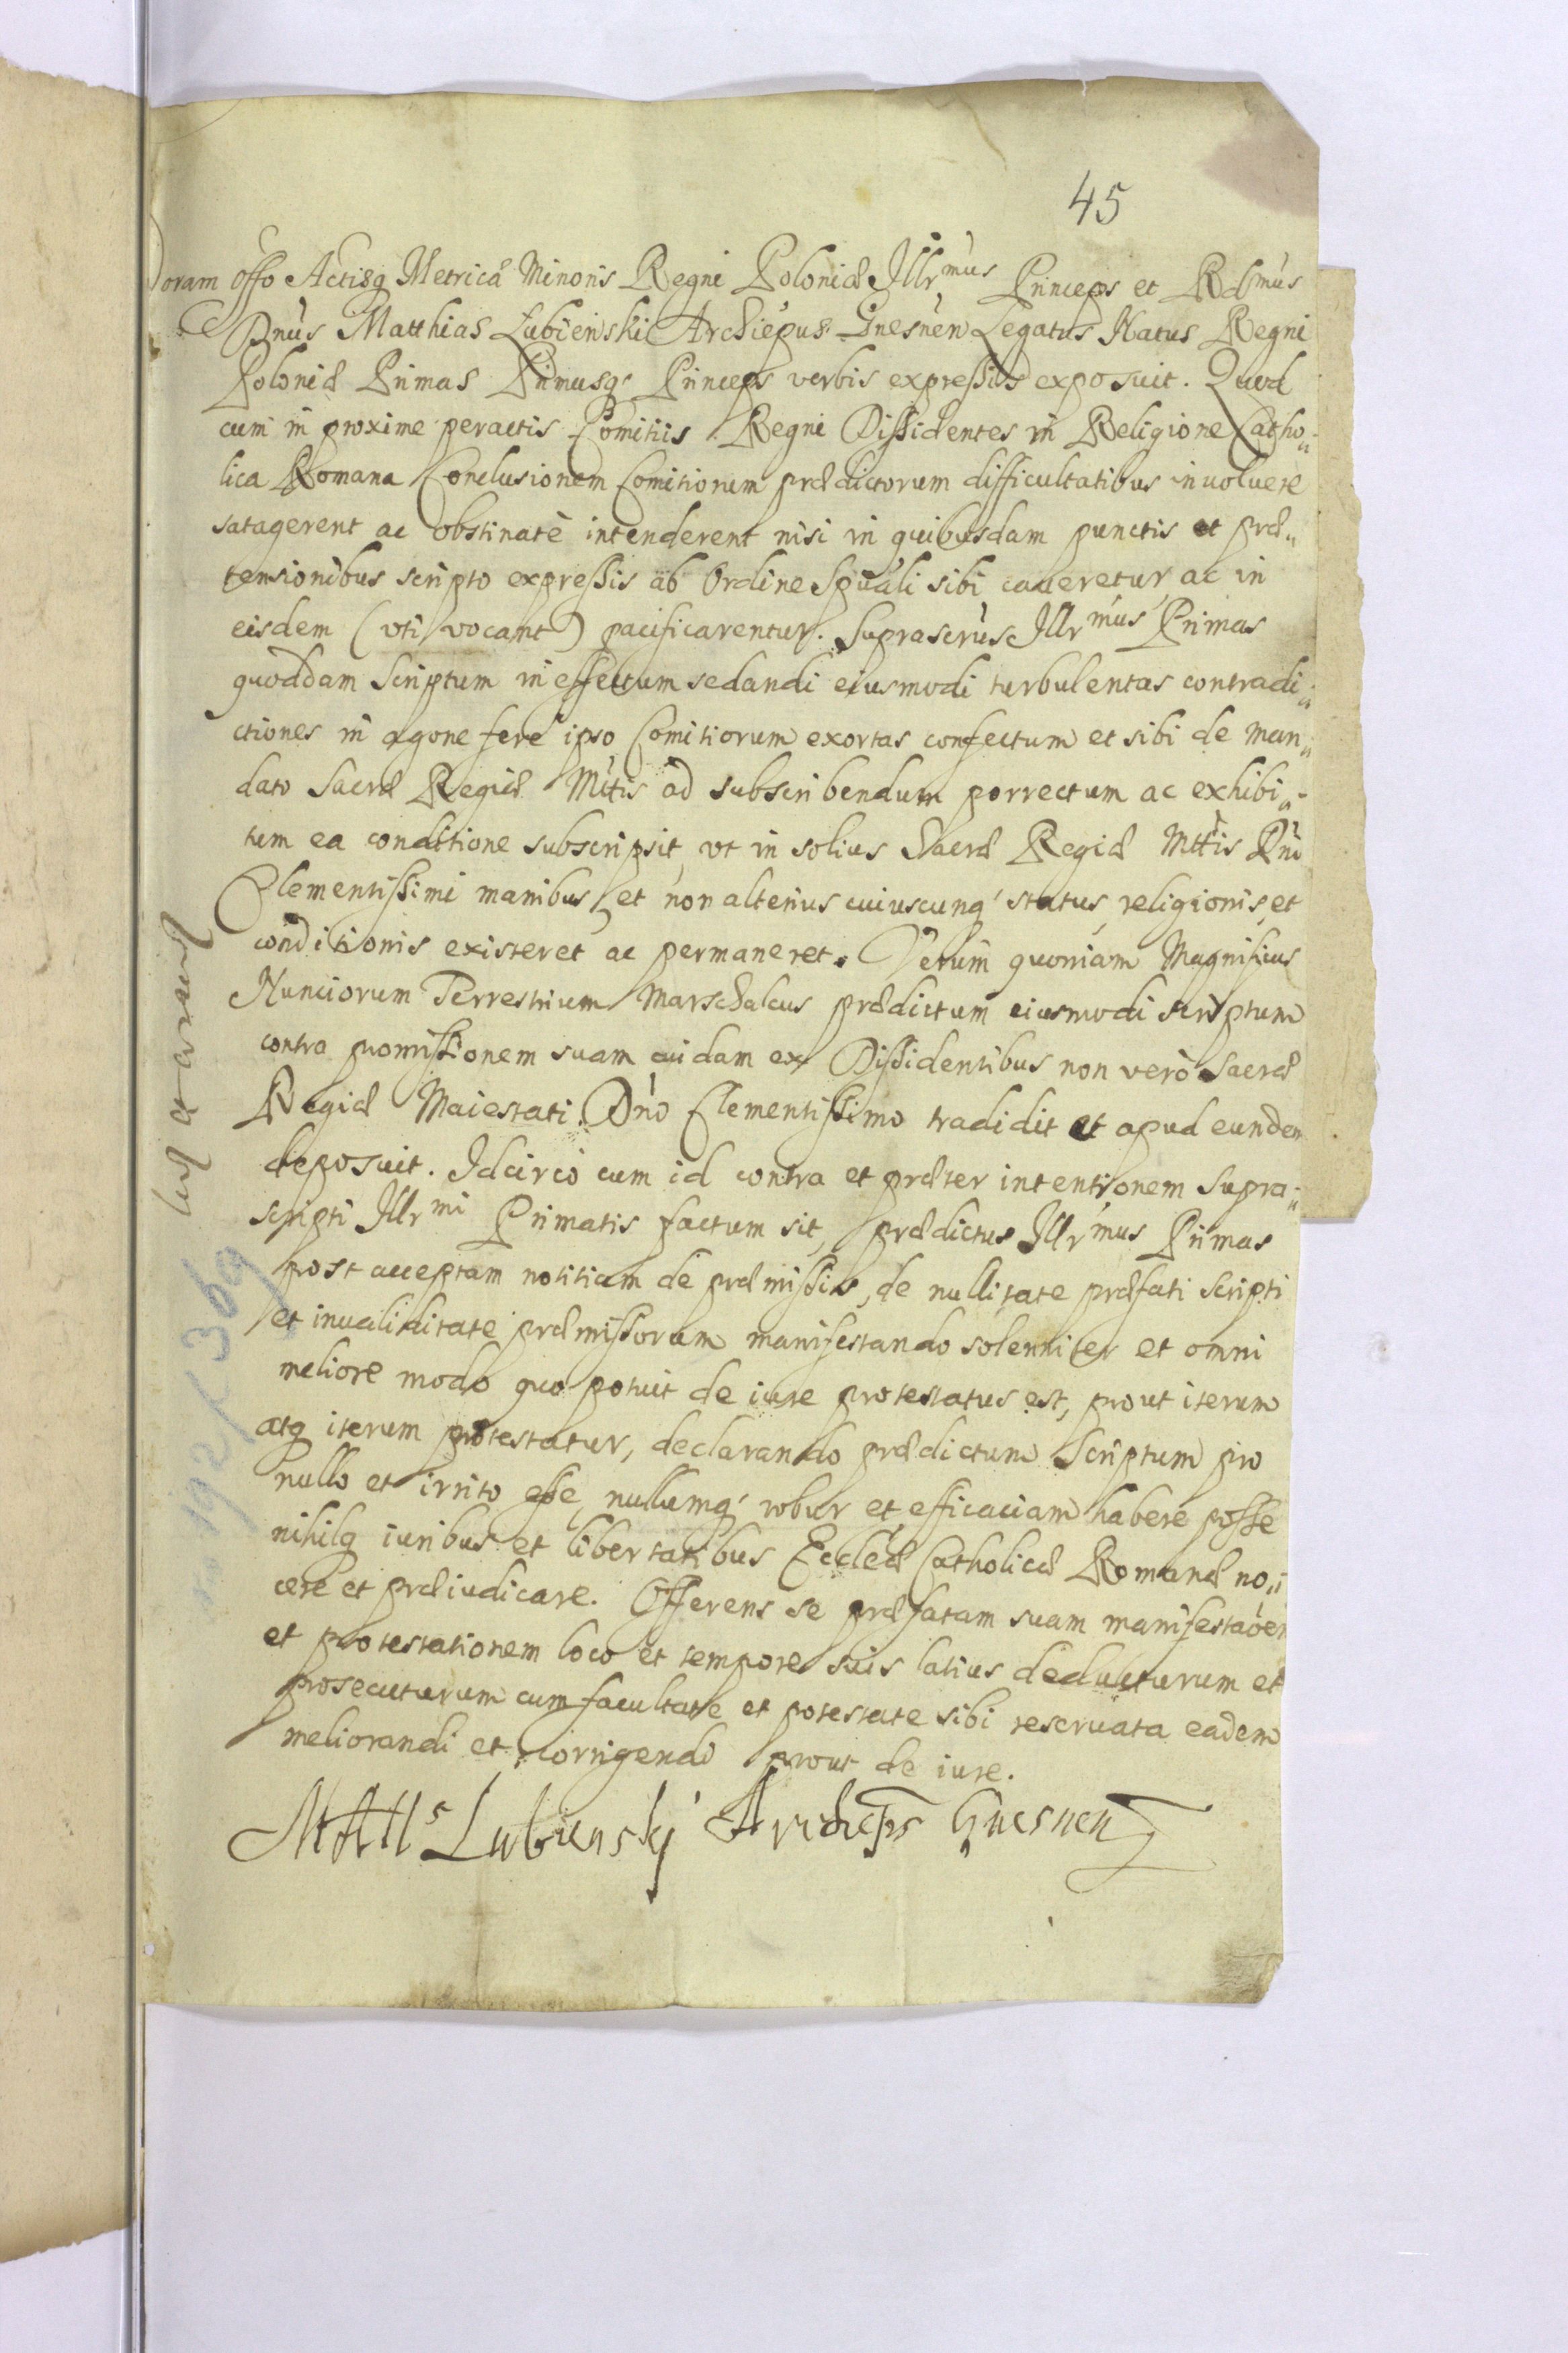 45
Coram Offo Actisq Metricæ Minoris Regni Poloniæ Illrmus Princeps et Rdmus
Dnus Matthias Lubienski Archiepus Gnesnen Legatus Natus Regni
Poloniæ Primas Primusq Princeps verbis expressis exposuit. Quod
cum in proxime peractis Comitiis Regni Dissidentes in Religione Catho„
lica Romana Conclusionem Comitiorum prædictorum difficultatibus inuoluere
satagerent ac obstinatè intenderent nisi in quibusdam punctis et præ„
tensionibus scripto expressis ab Ordine Spuali sibi caueretur, ac in
eisdem (vti vocant) pacificarentur. Suprascrus Illrmus Primas
quoddam Scriptum in effectum sedandi eiusmodi turbulentas contradi„
ctiones in agone ferè ipso Comitiorum exortas confectum et sibi de man„
dato Sacræ Regiæ Mttis ad subscribendum porrectum ac exhibi„
tum ea conditione subscripsit, vt in solius Sacræ Regiæ Mttis Dni
Clementissimi manibus, et non alterius cuiuscunq status, religionis, et
conditionis existeret ac permaneret. Verùm quoniam Magnificus
Nunciorum Terrestrium Marschalcus prædictum eiusmodi scriptum
contra promissionem suam cuidam ex Dissidentibus non verò Sacræ
Regiæ Maiestati Dno Clementissimo tradidit et apud eundem
deposuit. Idcircò cum id contra et præter intentionem Supra„
scripti Illrmi Primatis factum sit, prædictus Illrmus Primas
post acceptam notitiam de præmissis, de nullitate præfati Scripti
et inualiditate præmissorum manifestando solenniter et omni
meliore modo quo potuit de iure protestatus est, prout iterum
atq iterum protestatur, declarando prædictum Scriptum pro
nullo et irrito esse, nullumq robur et efficaciam habere posse
nihilq iuribus et libertatibus Ecclæ Catholicæ Romanæ no„
cere et præiudicare. Offerens se præfatam suam manifestaoem
et protestationem loco et tempore suis latius deducturum et
prosecuturum cum facultate et potestate sibi reseruata eadem
meliorandi et corrigendi prout de iure.
Matts Lubienskÿ Archieps Gnesnen